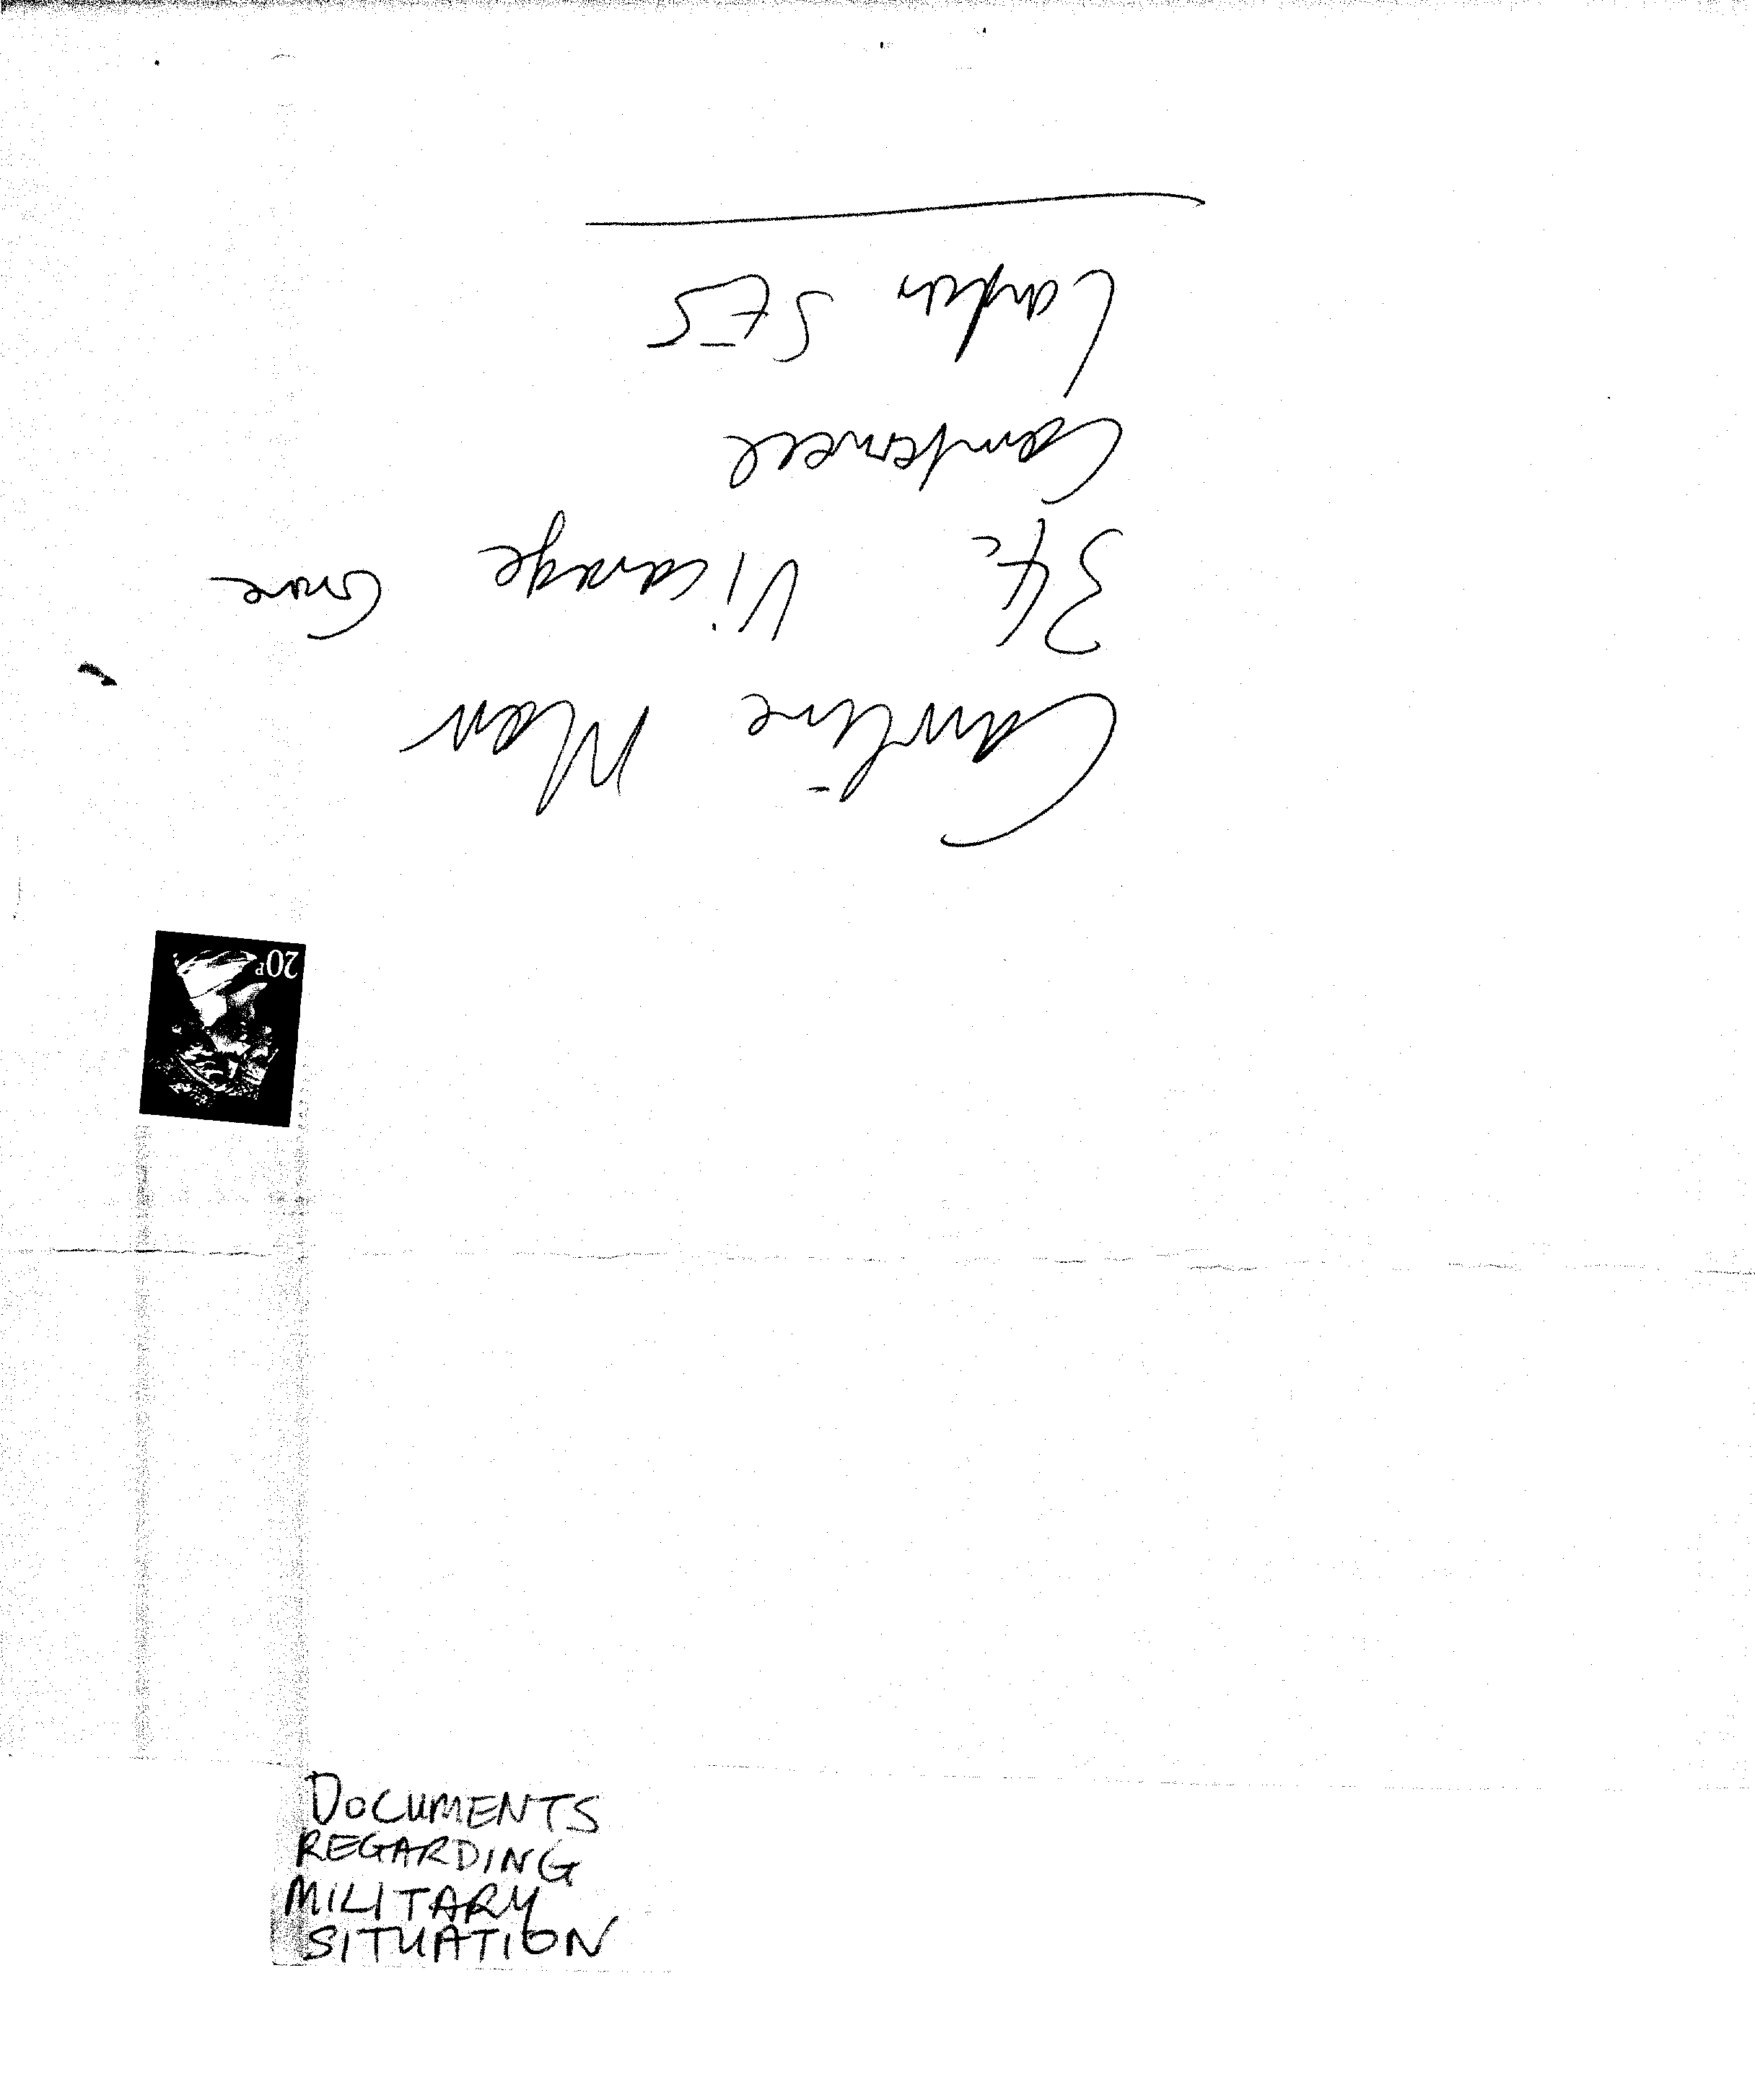 Caroline
34 Vicarage Grove
Camberwell
London SE5
20P
DOCUMENTS
REGARDING
MILITARY
SITUATION